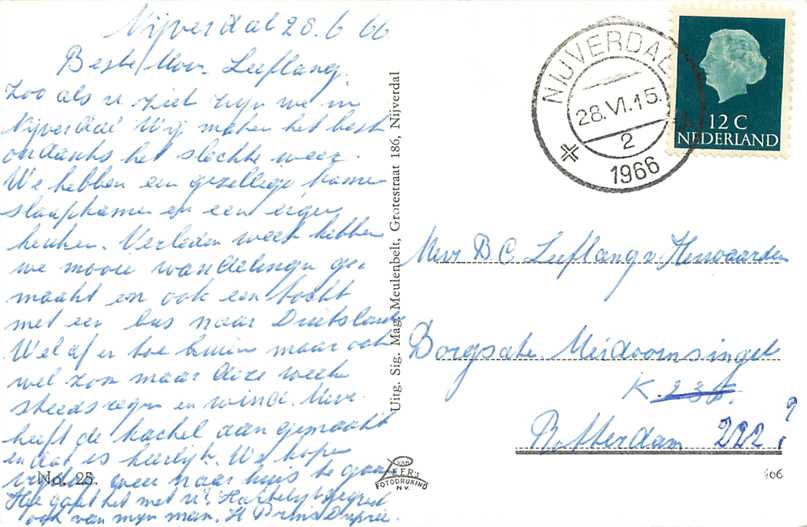 Nijverdal 28.6.66
Beste Mevr. Leeflang.
Zoo als u ziet zijn we in
Nijverdal Wij maken het best
ondanks het slechte weer.
We hebben een gezellige kamer
slaapkamer en een eigen
keuken. Verleden week hebben
we mooie wandelingen ge-
maakt en ook een tocht
met een bus naar Duitsland
Wel af en toe buien maar ook
wel zon maar deze week
steeds regen en wind. Mevr.
heeft de kachel aan gemaakt
en dat is heerlijk. We hopen
weer naar huis te gaan
Hoe gaat het met u? Hartelijk gegroet
ook van mijn man. H
No. 25.
Uitg. Sig. Mag. Meulenbelt, Grotestraat 186, Nijverdal
VAN
FOTODRUKIND
N.V.
NIJVERDAL
28.VI.15.
2
1966
12 C
NEDERLAND
Mevr B C. Leeflang v. Herwaarden
Borgsate. Meidoornsingel
K. 235.
Rotterdam 222.?
406